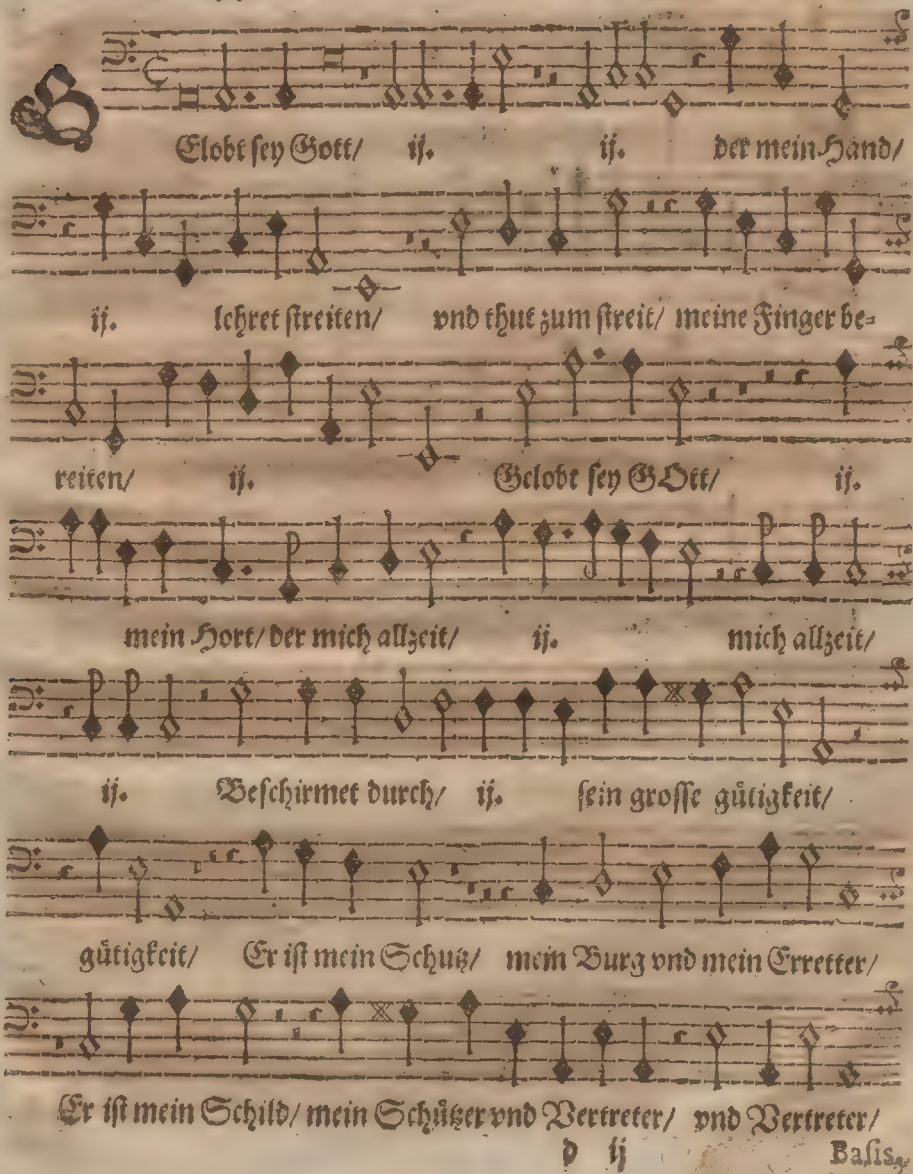 GElobt sey Gott/ ij. ij. der mein Hand/
ij. lehret streiten/ vnd thut zum streit/ meine Finger be=
reiten/ ij. Gelobt sey GOtt/ ij.
mein Hort/ der mich allzeit/ ij. mich allzeit/
ij. Beschirmet durch/ ij. sein grosse gütigkeit/
gütigkeit/ Er ist mein Schutz/ mein Burg vnd mein Erretter/
Er ist mein Schild/ mein Schützer vnd Vertreter/ vnd Vertreter/
d ij Basis.